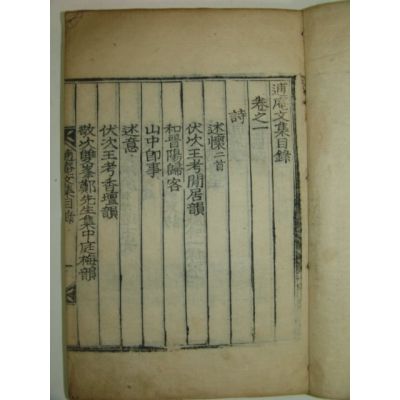 適庵文集目錄
卷之一
詩
述懷二首
伏次王考閒居韻
和晉陽歸客
山中卽事
述意
伏次王考香壇韻
敬次雙峯鄭先生集中庭梅韻
適庵文集目錄 一